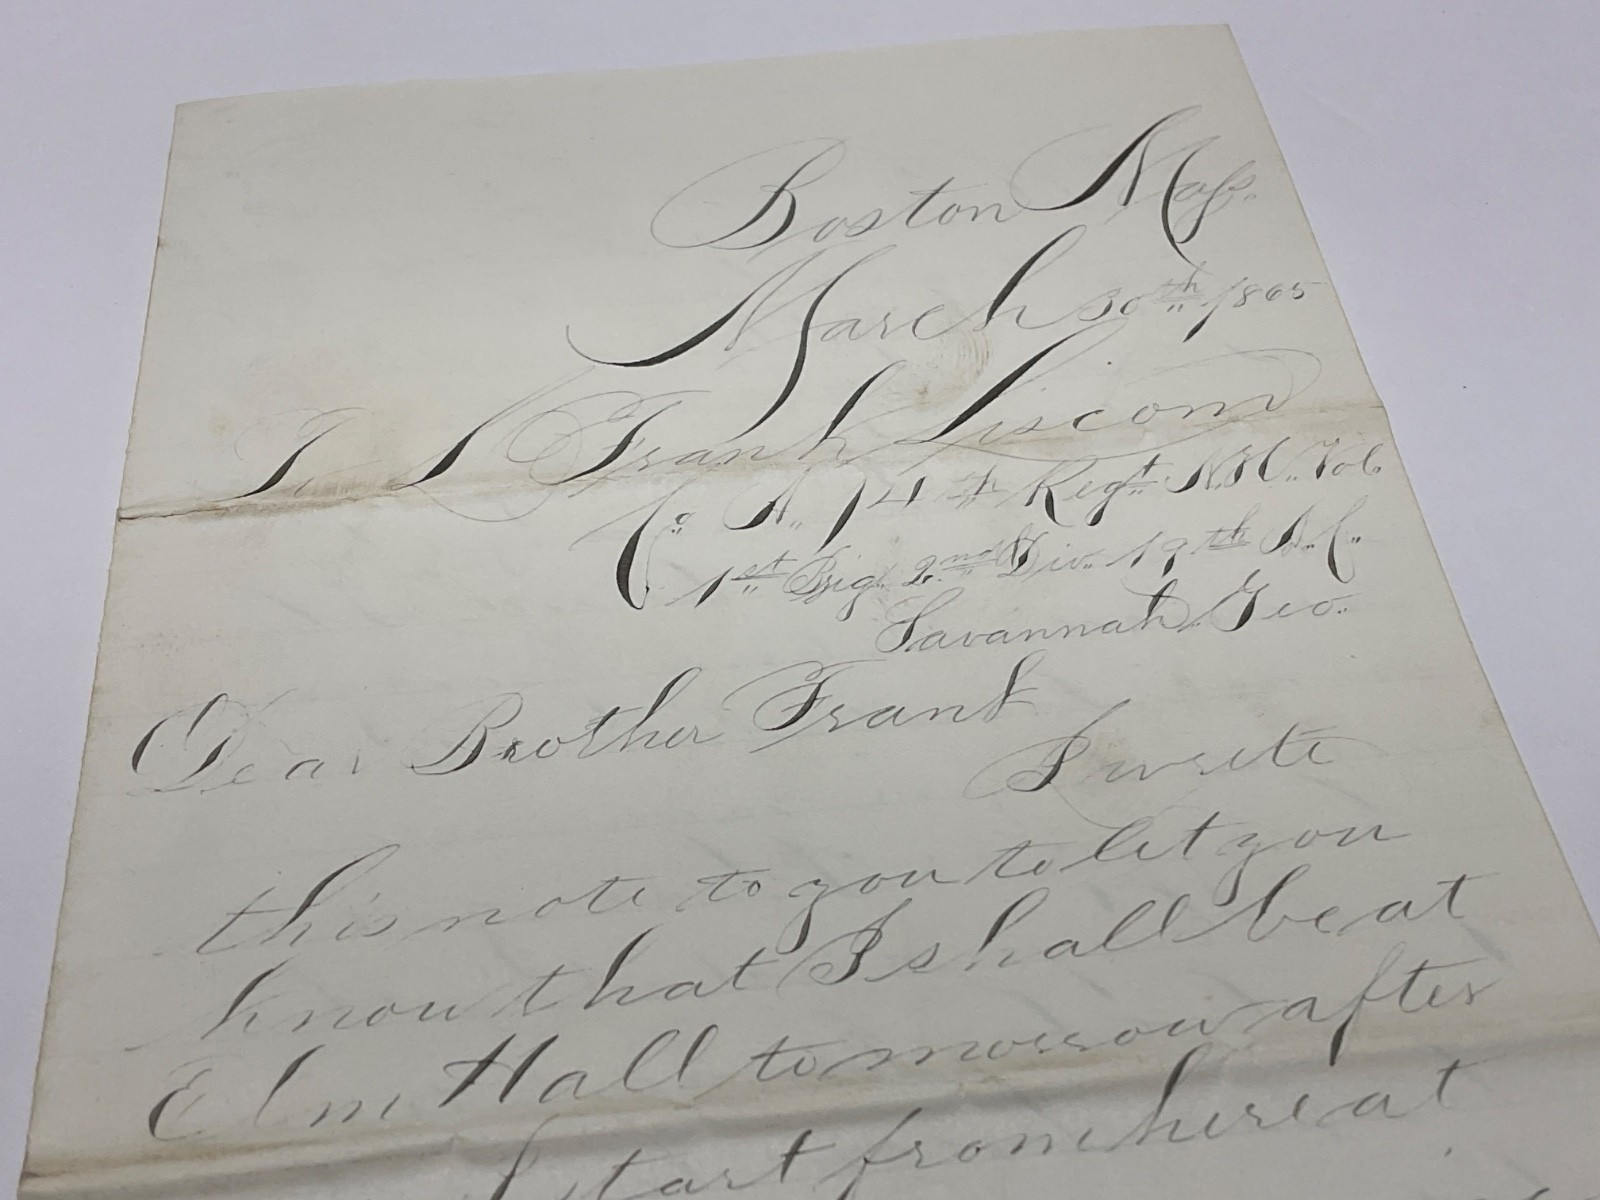 Boston Mass.
March 30th 1865
To S Frank Liscom
Co A. 14th Regt N.H. Vol
1st Brig. 2nd Div. 19th A.C.
Savannah Geo.
Dear Brother Frank
I write
this note to you to let you
know that I shall be at
Elm Hall tomorrow after
start from here at